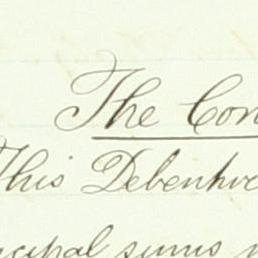 The Con
This Debenture
ncipal sums